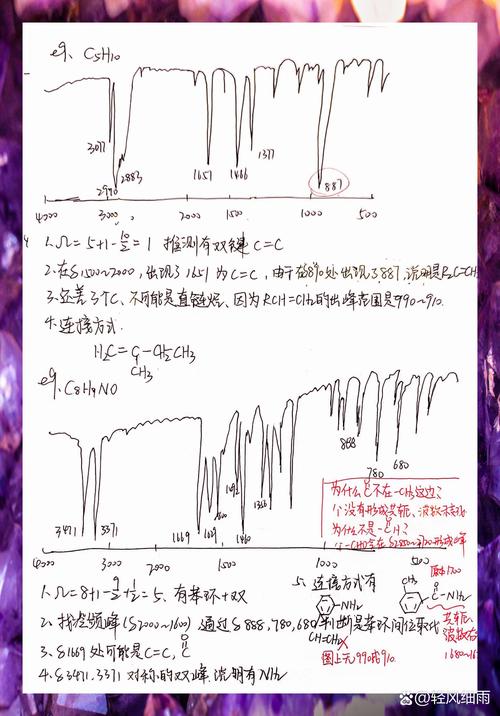 eg、 C5H10
3077
2990
2883
1651
1466
1377
887
4000 3000 2000 1500 1000 500
1. Ω = 5+1-10/2 = 1 推测有双键 C=C
2. 在δ1500~2000, 出现了1651为C=C, 由于在890处出现了887, 说明是R2C=CH
3. 还差3个C、不可能是直链烃、因为RCH=CH2的出峰范围是990~910.
4. 连接方式.
H2C=C-CH2CH3
CH3
eg、C8H9NO
3471
3371
1669
1460
888
780
680
4000 3000 2000 1000 500
为什么 不在-CH3这边?
没有形成共轭、波数
为什么不是-CH?
1. Ω = 8+1-9/2+1/2 = 5、有苯环+双
2. 找泛频峰(δ2000~1600) 通过δ888,780,680判断是苯环间位取代
3. δ1669处可能是C=C, C=O
4. δ3471,3371 对称的双峰说明有NH2
5. 连接方式有
NH2
CH=CH2
图上无990或910.
CH3
O
C-NH2
共轭、
波数在
头条@轻风细雨